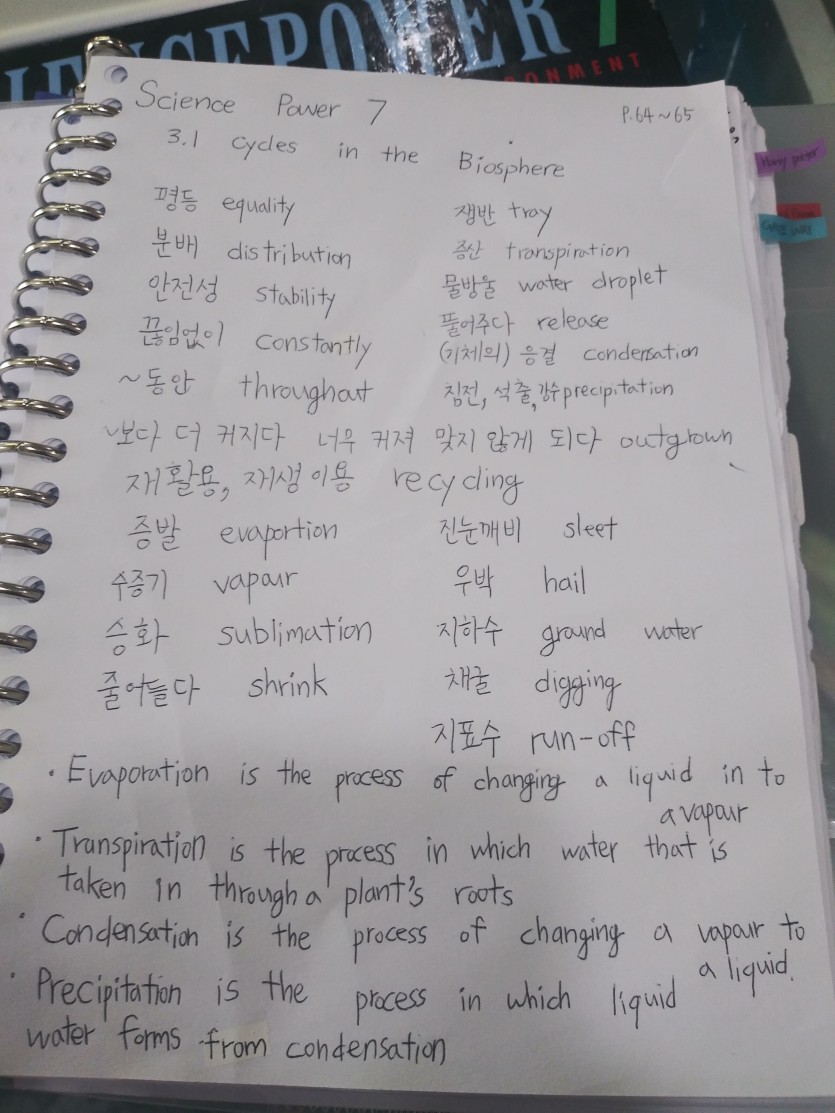 SCIENCEPOWER 7
ONMENT
Science Power 7 P.64~65
3.1 Cycles in the Biosphere
평등 equality
분배 distribution
안전성 stability
끊임없이 constantly
~동안 throughout
쟁반 tray
증산 transpiration
물방울 water droplet
풀어주다 release
(기체의) 응결 condensation
침전, 석출, 강수 precipitation
~보다 더 커지다 너무 커져 맞지 않게 되다 outgrown
재활용, 재생 이용 recycling
증발 evaportion
수증기 vapour
승화 sublimation
줄어들다 shrink
진눈깨비 sleet
우박 hail
지하수 ground water
채굴 digging
지표수 run-off
• Evaporation is the process of changing a liquid in to
a vapour
• Transpiration is the process in which water that is
taken in through a plant's roots
• Condensation is the process of changing a vapour to
a liquid.
• Precipitation is the process in which liquid
water forms from condensation